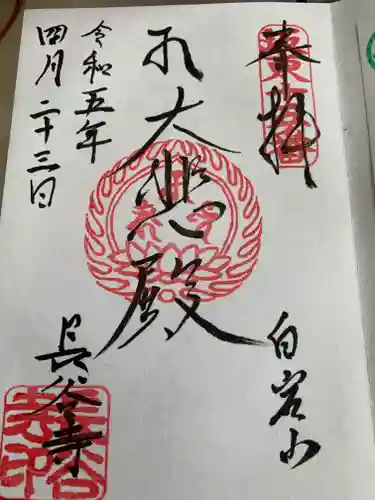 奉拝
白岩山
大悲殿
長谷寺
令和五年
四月二十三日